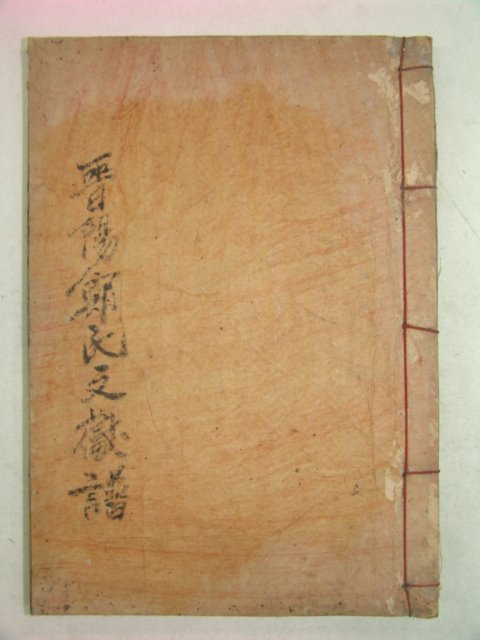 晋陽鄭氏文獻譜